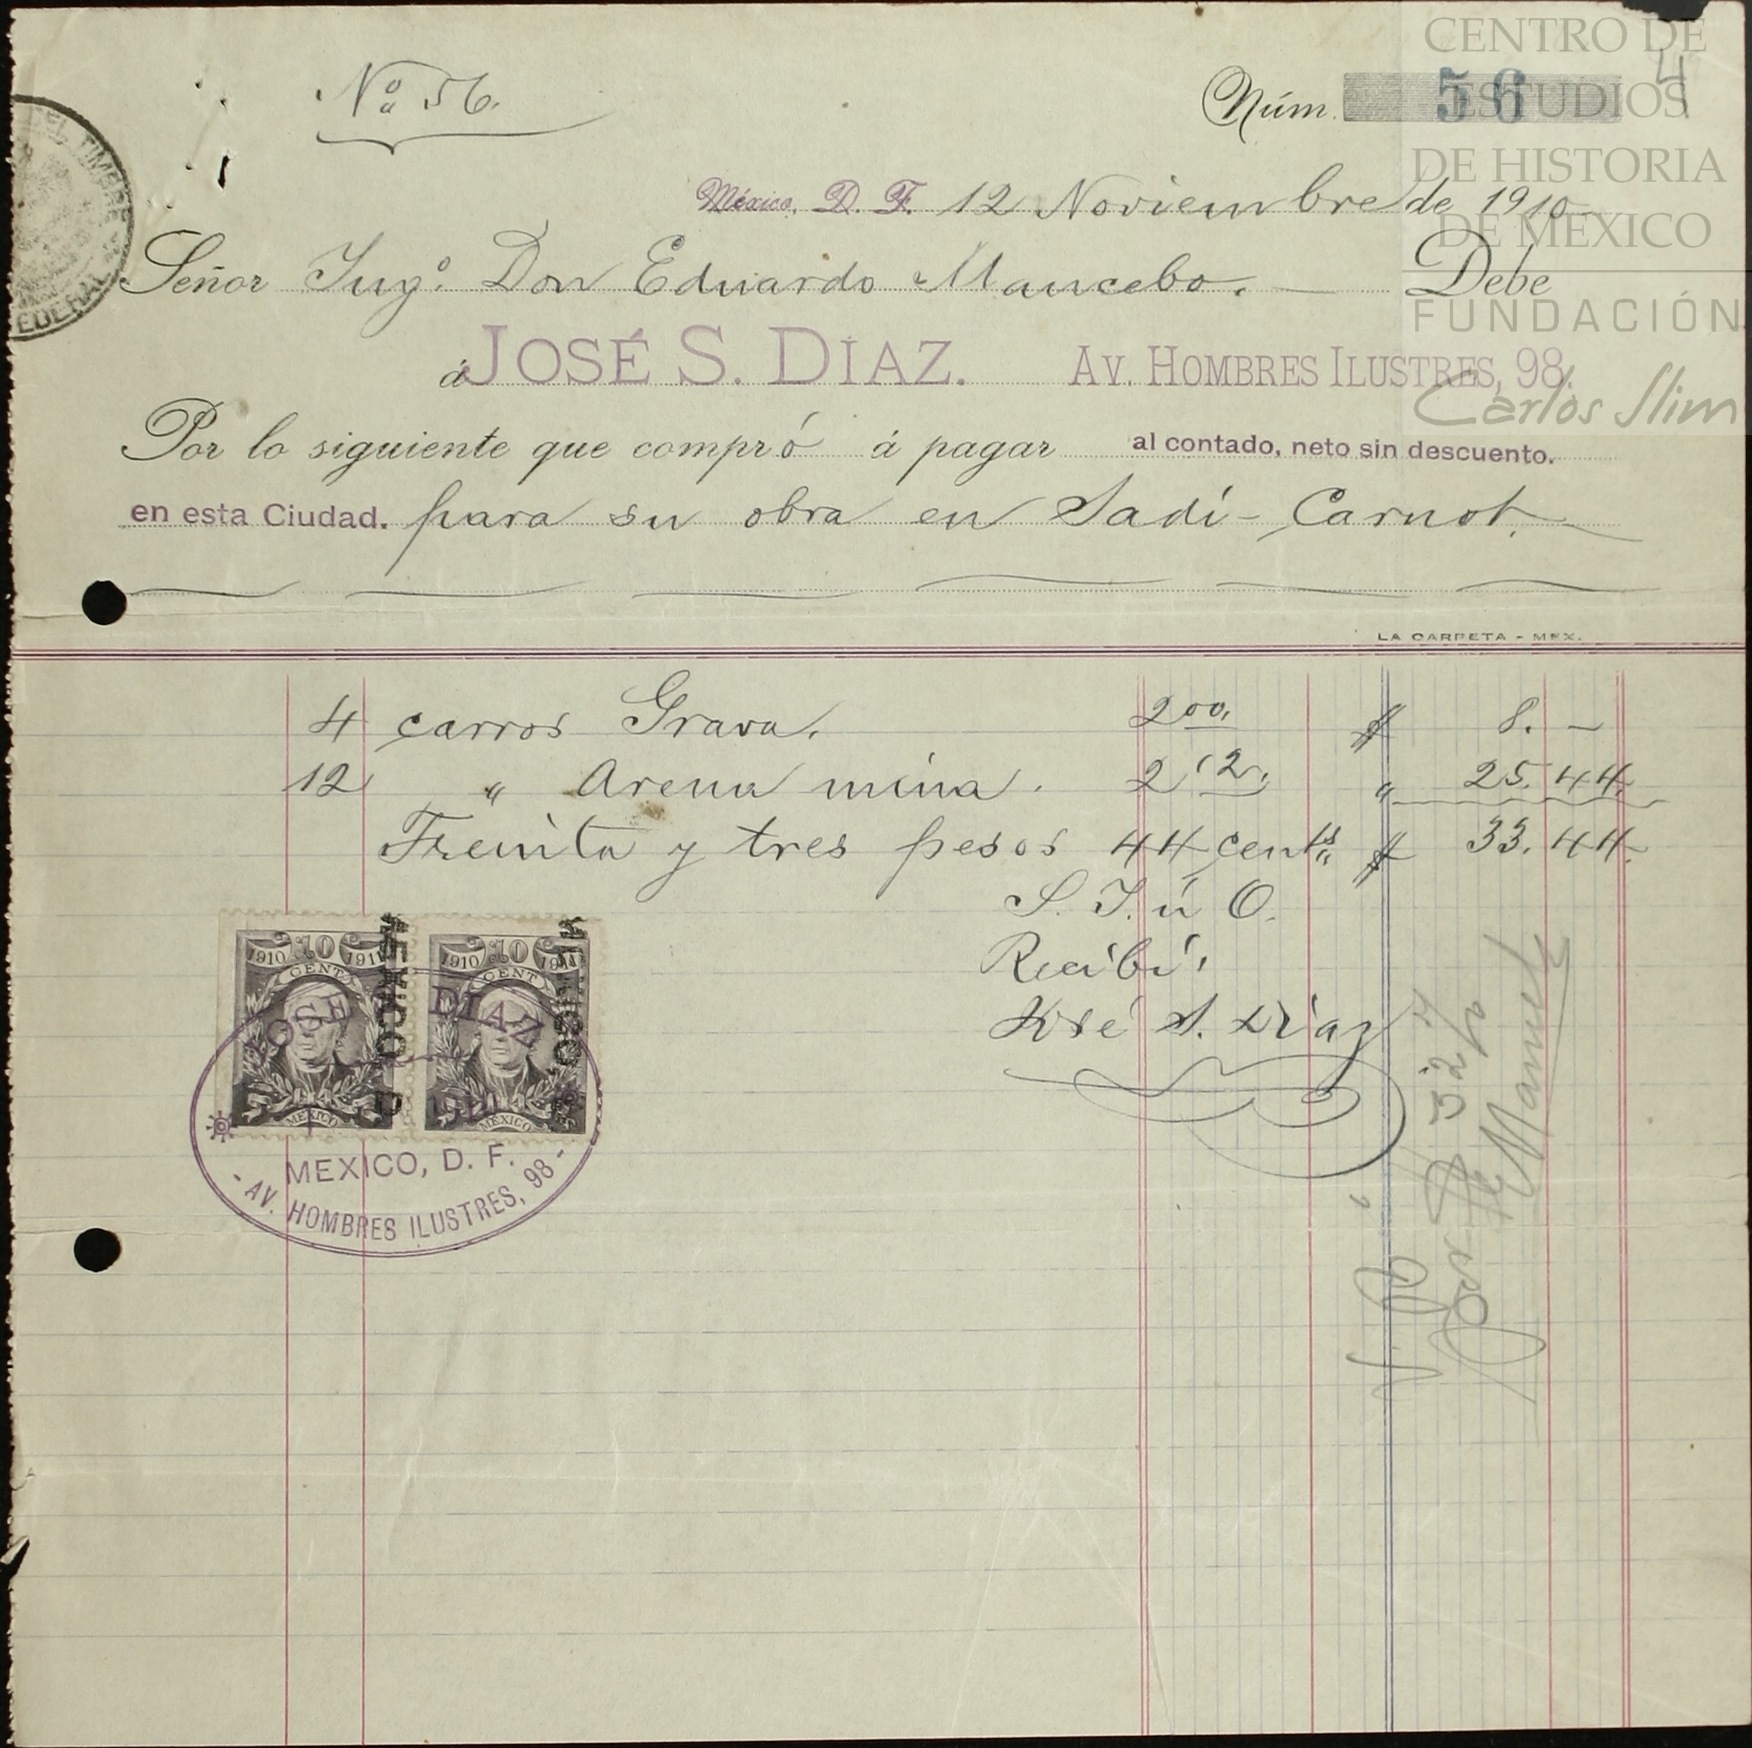 CENTRO DE
ESTUDIOS
DE HISTORIA
DE MÉXICO
FUNDACIÓN
Carlos Slim
4
Nº 56.
Núm. 56
DEL TIMBRE
FEDERAL
México, D. F. 12 Noviembre de 1910
Señor Ingº. Don Eduardo Mancebo. Debe
á JOSÉ S. DÍAZ. AV. HOMBRES ILUSTRES, 98.
Por lo siguiente que compró á pagar al contado, neto sin descuento.
en esta Ciudad. para su obra en Sadi-Carnot.
LA CARPETA - MEX.
4 carros Grava. 2 00, $ 8. —
12 " Arena mina. 2 12, " 25.44.
Treinta y tres pesos 44 cents $ 33.44.
S. I. ú O.
Recibí,
José S. Díaz
1910 10 1911
CENT
MEXICO
1910 10 1911
CENT
MEXICO
MEXICO D
MEXICO
JOSE DIAZ
MEXICO, D. F.
- AV. HOMBRES ILUSTRES, 98 -